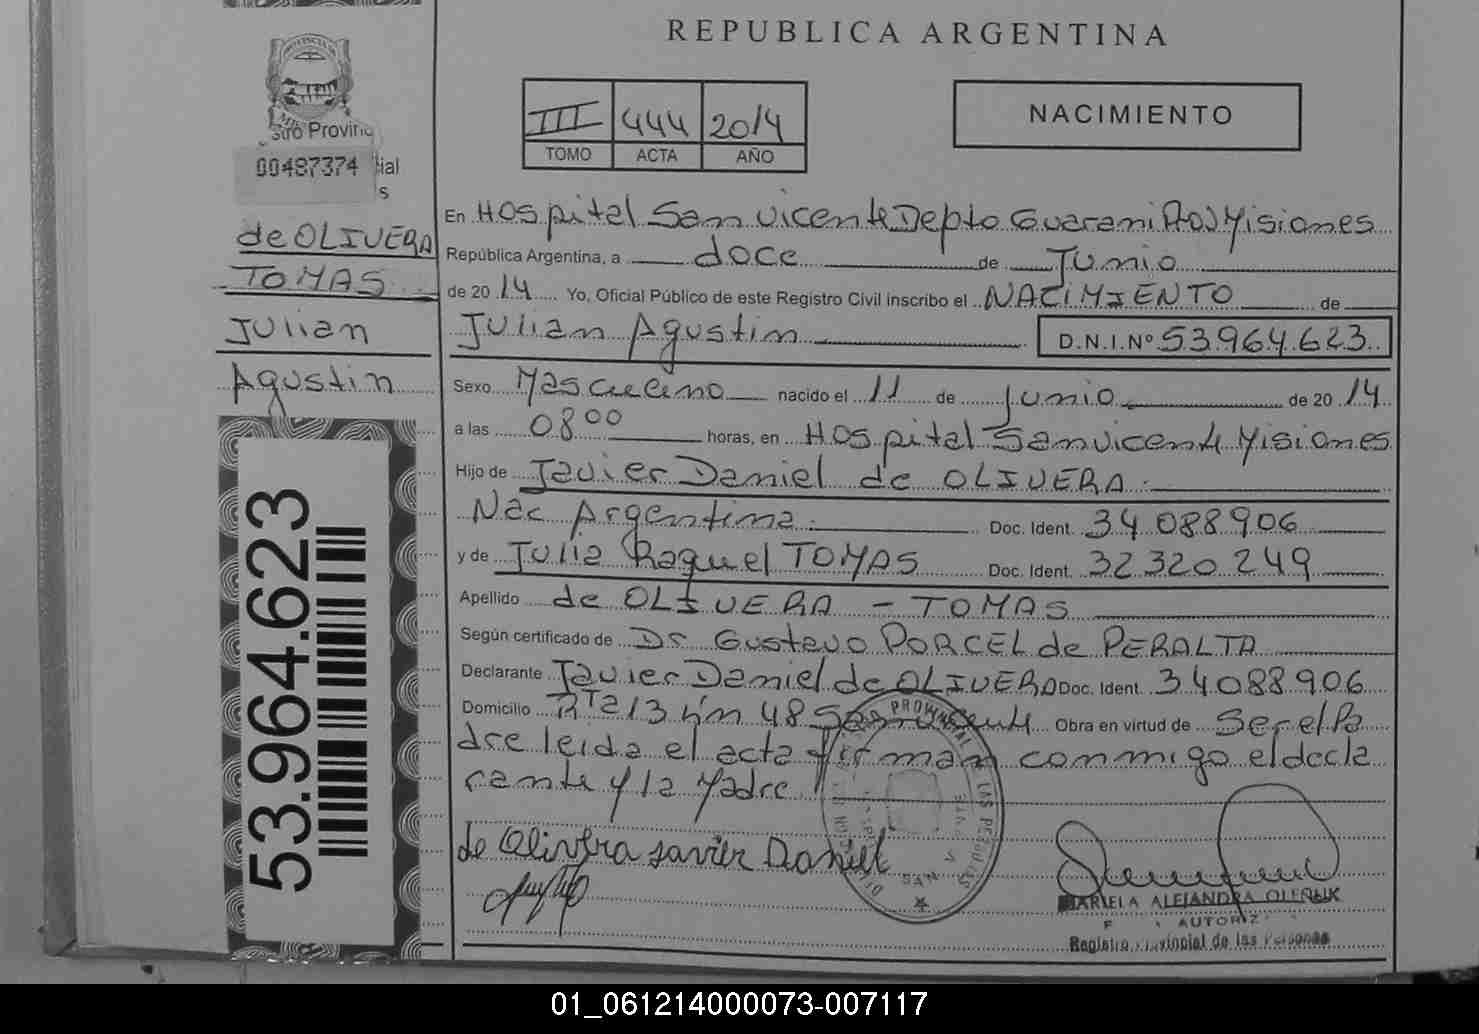 REPUBLICA ARGENTINA
III 444 2014
TOMO ACTA AÑO
NACIMIENTO
PROVINCIA DE
MIS
stro Provinc
00487374 ial
s
de OLIVERA
TOMAS
Julian
Agustin
53.964.623
En Hospital San Vicente Depto Guarani Misiones
República Argentina, a doce de Junio
de 2014 Yo, Oficial Público de este Registro Civil inscribo el NACIMIENTO de
Julian Agustin D.N.I.Nº 53.964.623
Sexo Masculino nacido el 11 de Junio de 2014
a las 08 00 horas, en Hospital San Vicente Misiones
Hijo de Javier Daniel de OLIVERA.
Nac Argentina. Doc. Ident. 34.088906
y de Julia Raquel TOMAS Doc. Ident. 32320249
Apellido de OLIVERA - TOMAS
Según certificado de Dr Gustavo PORCEL de PERALTA
Declarante Javier Daniel de OLIVERA Doc. Ident. 34088906
Domicilio Rta 13 km 48 San Vicente Obra en virtud de Ser el Pa
dre leida el acta firman conmigo el decla
rante y la Madre
de Olivera Javier Daniel
PROVINCIAL DE LAS PERSONAS
SAN V
MARIELA ALEJANDRA OLEÑUK
AUTORIZ
Registro Provincial de las Personas
01_061214000073-007117